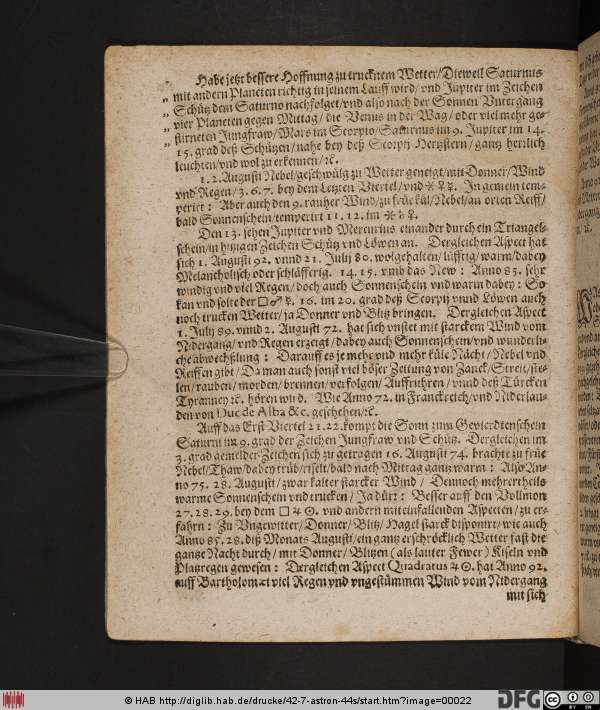 Habe jetzt bessere Hoffnung zu trucknem Wetter/Dieweil Saturnus
„ mit andern Planeten richtig in seinem Lauff wird/vnd Jupiter im Zeichen
„ Schütz dem Saturno nachfolget/vnd also nach der Sonnen Vntergang
„ vier Planeten gegen Mittag/die Venus in der Wag/oder viel mehr ge-
„ stürneten Jungfraw/Mars im Scorpio/Saturnus im 9. Jupiter im 14.
15. grad deß Schützen/nahe bey deß Scorpij Hertzstern/gantz herrlich
leuchten/vnd wol zu erkennen/ꝛc.
1. 2. Augusti Nebel/geschwülg zu Wetter geneigt/mit Donner/Wind
vnd Regen/3. 6. 7. bey dem Letzten Viertel/vnd ⚹ ♀ ☿. In gemein tem-
perirt: Aber auch den 9. rauher Wind/zu früe kül/Nebel/an orten Reiff/
bald Sonnenschein/temperirt 11. 12. im ⚹ ♄ ♀.
Den 13. sehen Jupiter vnd Mercurius einander durch ein Triangel-
schein/in hitzigen Zeichen Schütz vnd Löwen an. Dergleichen Aspect hat
sich 1. Augusti 92. vnnd 21. Julij 80. wolgehalten/lüfftig/warm/dabey
Melancholisch oder schläfferig. 14. 15. vmb das New: Anno 85. sehr
windig vnd viel Regen/doch auch Sonnenschein vnd warm dabey: So
kan vnd solte der □ ♂ ☿. 16. im 20. grad deß Scorpij vnnd Löwen auch
noch trucken Wetter/ja Donner vnd Blitz bringen. Dergleichen Aspect
1. Julij 89. vnnd 2. Augusti 72. hat sich vnstet mit starckem Wind vom
Nidergang/vnd Regen erzeigt/dabey auch Sonnenschein/vnd wunderli-
che abwechßlung: Darauff es je mehr vnd mehr küle Nächt/Nebel vnd
Reiffen gibt/Da man auch sonst viel böser Zeitung von Zanck/Streit/ste-
len/rauben/morden/brennen/verfolgen/Auffruhren/vnnd deß Türcken
Tyranney ꝛc. hören wird. Wie Anno 72. in Franckreich/vnd Niderlan-
den von Duc de Alba &c. geschehen/ꝛc.
Auff das Erst Viertel 21. 22. kompt die Sonn zum Gevierdtenschein
Saturni im 9. grad der Zeichen Jungfraw vnd Schütz. Dergleichen im
3. grad gemelder Zeichen sich zu getragen 16. Augusti 74. brachte zu früe
Nebel/Thaw/dabey trüb/riselt/bald nach Mittag gantz warm: Also An-
no 75. 28. Augusti/zwar kalter starcker Wind/Dennoch mehrertheils
warme Sonnenschein vnd trucken/Ja dürr: Besser auff den Vollmon
27. 28. 29. bey dem □ ♃ ☉. vnd andern miteinfallenden Aspecten/zu er-
fahrn: Zu Vngewitter/Donner/Blitz/Hagel starck disponirt/wie auch
Anno 85. 28. diß Monats Augusti/ein gantz erschröcklich Wetter fast die
gantze Nacht durch/mit Donner/Blitzen (als lauter Fewer) Kiseln vnd
Platzregen gewesen: Dergleichen Aspect Quadratus ♃ ☉. hat Anno 92.
auff Bartholomæi viel Regen vnd vngestümmen Wind vom Nidergang
mit sich
© HAB http://diglib.hab.de/drucke/42-7-astron-44s/start.htm?image=00022
DFG
cc BY SA